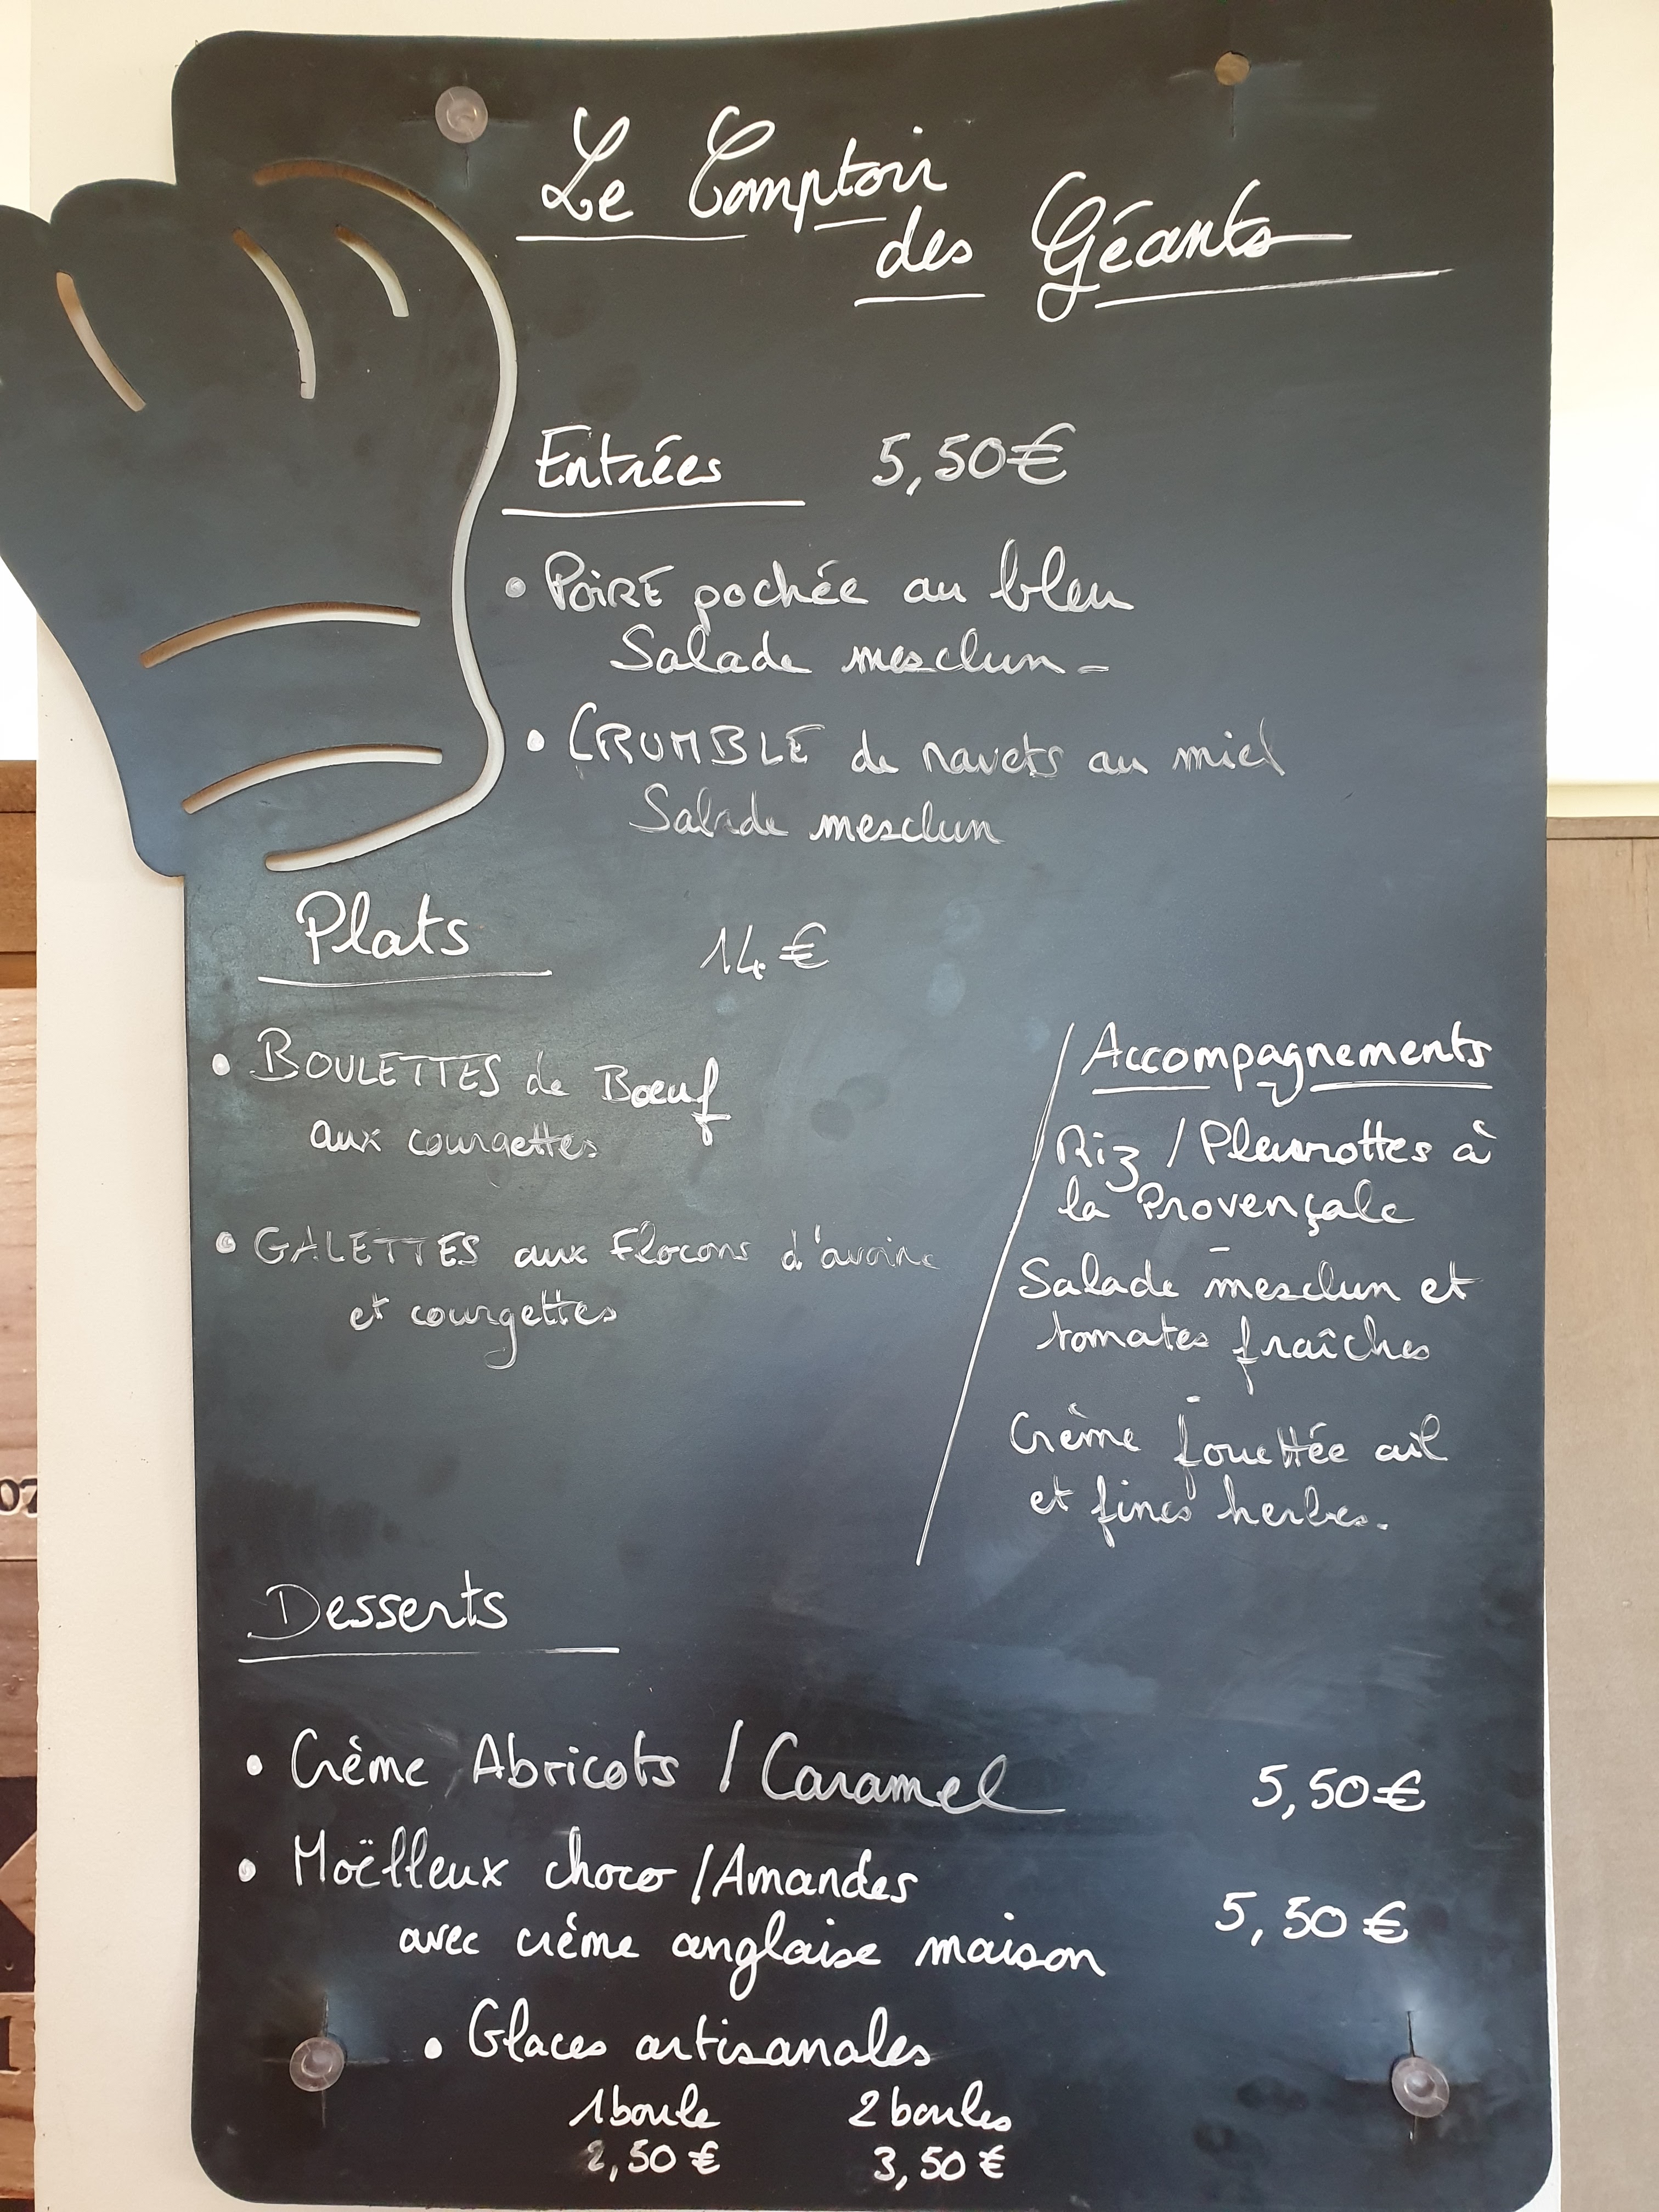 Le Comptoir
des Géants
Entrées 5,50€
• POIRE pochée au bleu
Salade mesclun -
• CRUMBLE de navets au miel
Salade mesclun
Plats 14€
• BOULETTES de Bœuf
aux courgettes
• GALETTES aux Flocons d'avoine
et courgettes
Accompagnements
Riz / Pleurottes à
la Provençale
-
Salade mesclun et
tomates fraîches
-
Crème fouettée ail
et fines herbes.
Desserts
• Crème Abricots / Caramel 5,50€
• Moëlleux choco / Amandes
avec crème anglaise maison 5,50€
• Glaces artisanales
1 boule 2 boules
2,50€ 3,50€
07